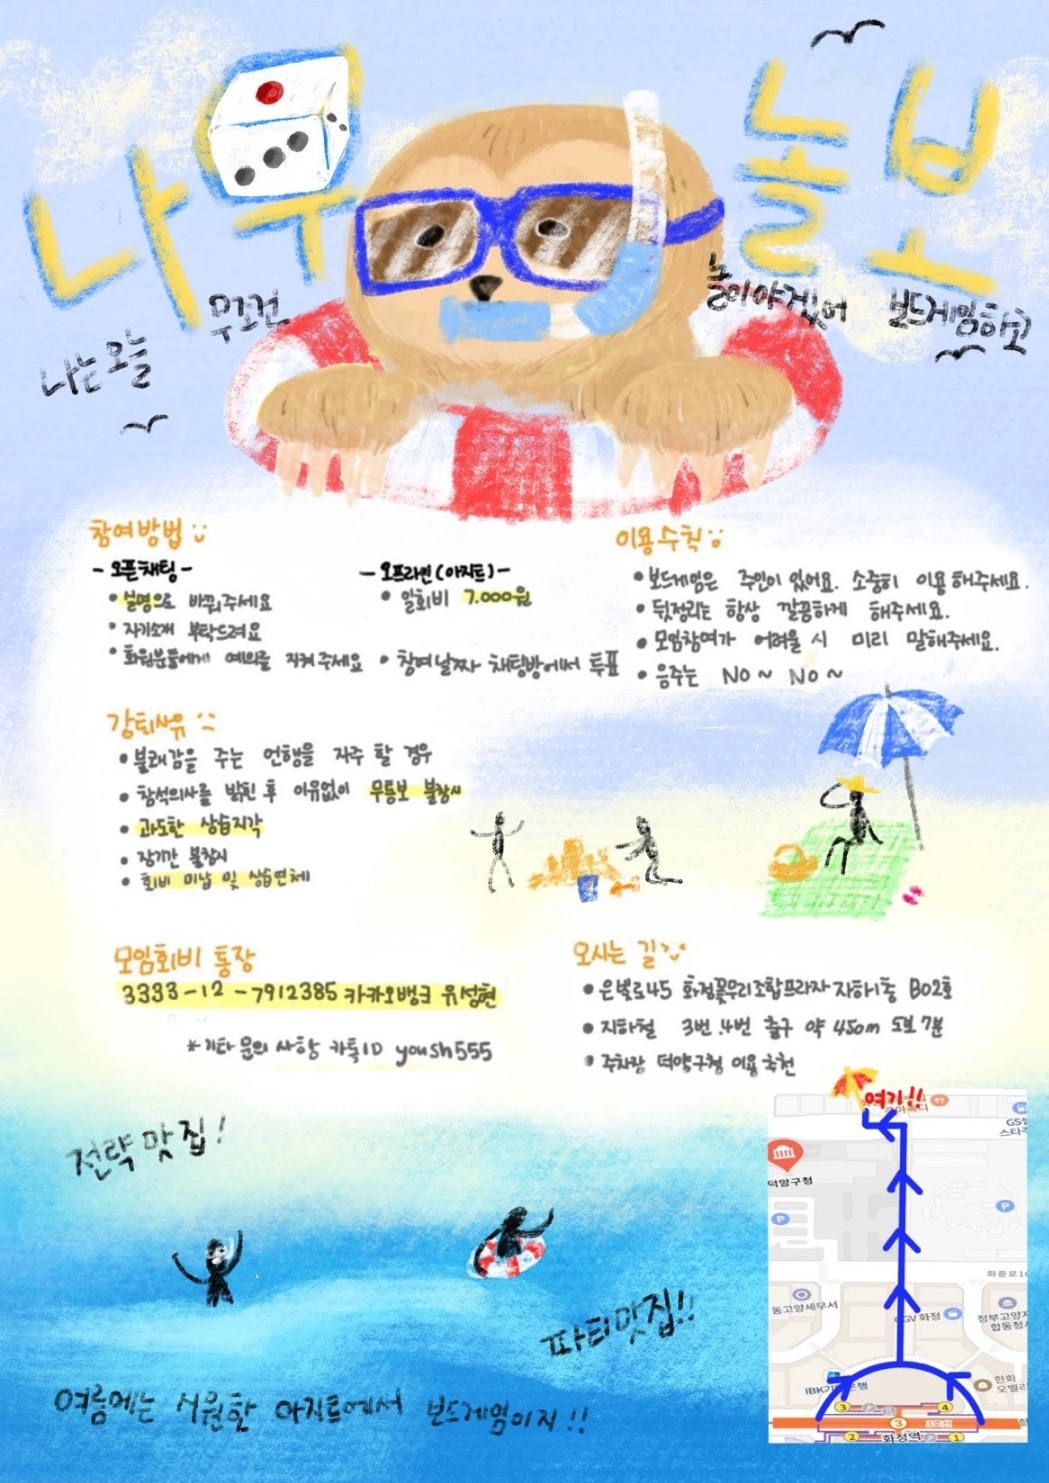 나무늘보
나는오늘 무조건 놀아야겠어 보드게임하고
참여방법
- 오픈채팅 -
• 실명으로 바꿔주세요
• 자기소개 부탁드려요
• 회원분들에게 예의를 지켜주세요
- 오프라인(아지트) -
• 일회비 7.000원
• 참여날짜 채팅방에서 투표
이용수칙
• 보드게임은 주인이 있어요. 소중히 이용해주세요.
• 뒷정리는 항상 깔끔하게 해주세요.
• 모임참여가 어려울 시 미리 말해주세요.
• 음주는 No ~ No ~
강퇴사유
• 불쾌감을 주는 언행을 자주 할 경우
• 참석의사를 밝힌 후 이유없이 무통보 불참시
• 과도한 상습지각
• 장기간 불참시
• 회비 미납 및 상습연체
모임회비 통장
3333-12-7912385 카카오뱅크 유성현
* 기타 문의 사항 카톡ID yoush555
오시는 길
• 은빛로45 화정꽃우리조합프라자 지하1층 B02호
• 지하철 3번.4번 출구 약 450m 도보 7분
• 주차장 덕양구청 이용 추천
여기!!
GS
스타
덕양구청
P
P
화중로1
동고양세무서
CGV 화정
정부고양지
합동청사
IBK기업은행
한화
오벨리
3
4
3
3호선
2
화정역
1
전략맛집!
파티맛집!!
여름에는 시원한 아지트에서 보드게임이지!!